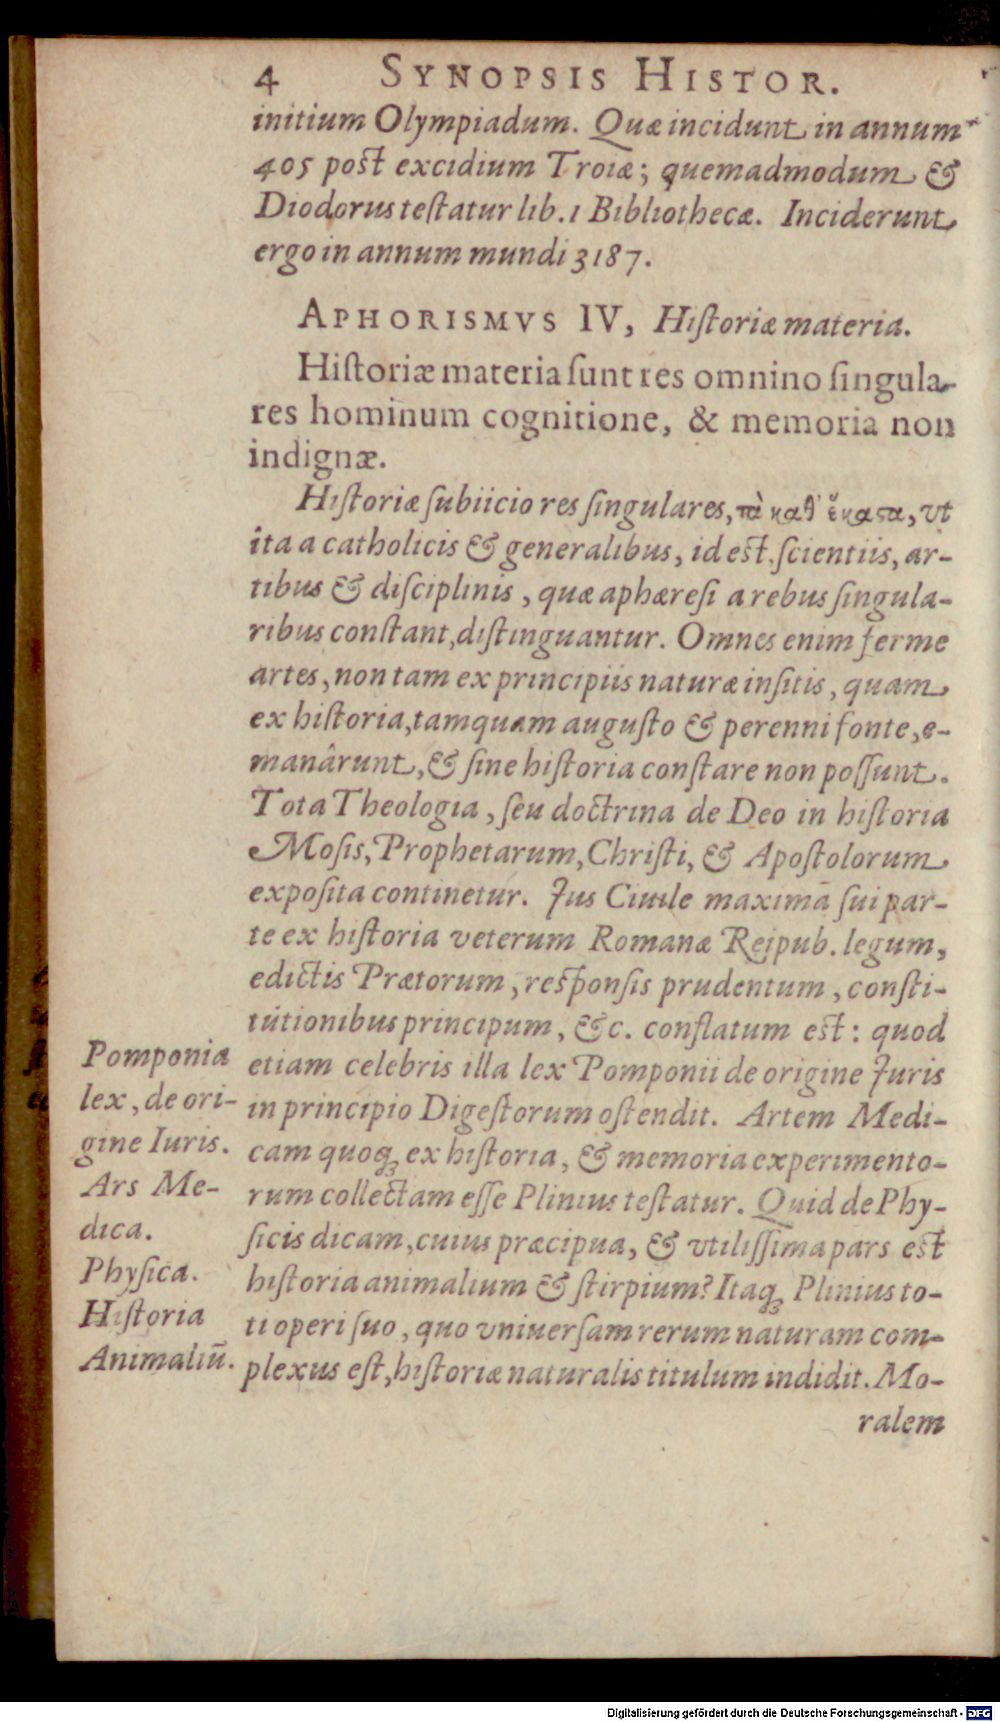 4 SYNOPSIS HISTOR.
initium Olympiadum. Quæ incidunt in annum
405 post excidium Troiæ; quemadmodum &
Diodorus teſtatur lib. 1 Bibliothecæ. Inciderunt
ergo in annum mundi 3187.
APHORISMVS IV, Hiſtoriæ materia.
Hiſtoriæ materia ſunt res omnino ſingula-
res hominum cognitione, & memoria non
indignæ.
Hiſtoriæ ſubiicio res ſingulares, τὰ καθ' ἕκαστα, vt
ita a catholicis & generalibus, id est, ſcientiis, ar-
tibus & diſciplinis, quæ aphæreſi a rebus ſingula-
ribus conſtant, diſtinguantur. Omnes enim ferme
artes, non tam ex principiis naturæ inſitis, quam
ex hiſtoria, tamquam auguſto & perenni fonte, e-
manârunt, & ſine hiſtoria conſtare non poſſunt.
Tota Theologia, ſeu doctrina de Deo in hiſtoria
Moſis, Prophetarum, Chriſti, & Apoſtolorum
expoſita continetur. Jus Ciuile maximā ſui par-
te ex hiſtoria veterum Romanæ Reipub. legum,
edictis Prætorum, reſponſis prudentum, conſti-
tutionibus principum, &c. conflatum est: quod
etiam celebris illa lex Pomponii de origine Juris
in principio Digeſtorum oſtendit. Artem Medi-
cam quoq; ex hiſtoria, & memoria experimento-
rum collectam eſſe Plinius teſtatur. Quid de Phy-
ſicis dicam, cuius præcipua, & vtiliſſima pars est
hiſtoria animalium & ſtirpium? Itaq; Plinius to-
ti operi ſuo, quo vniuerſam rerum naturam com-
plexus eſt, hiſtoriæ naturalis titulum indidit. Mo-
ralem
Pomponia
lex, de ori-
gine Iuris.
Ars Me-
dica.
Phyſica.
Hiſtoria
Animaliū.
Digitalisierung gefördert durch die Deutsche Forschungsgemeinschaft - DFG